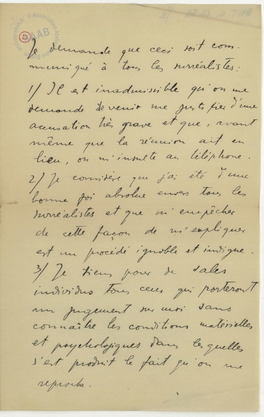 AAB
Je demande que ceci soit com-
muniqué à tous les surréalistes :
1/ Il est inadmissible qu'on me
demande de venir me justifier d'une
accusation très grave et que, avant
même que la réunion ait eu
lieu, on m'insulte au téléphone.
2/ Je considère que j'ai été d'une
bonne foi absolue envers tous les
surréalistes et que m'empêcher
de cette façon de m'expliquer
est un procédé ignoble et indigne.
3/ Je tiens pour de sales
individus tous ceux qui porteront
un jugement sur moi sans
connaître les conditions matérielles
et psychologiques dans lesquelles
s'est produit le fait qu'on me
reproche.